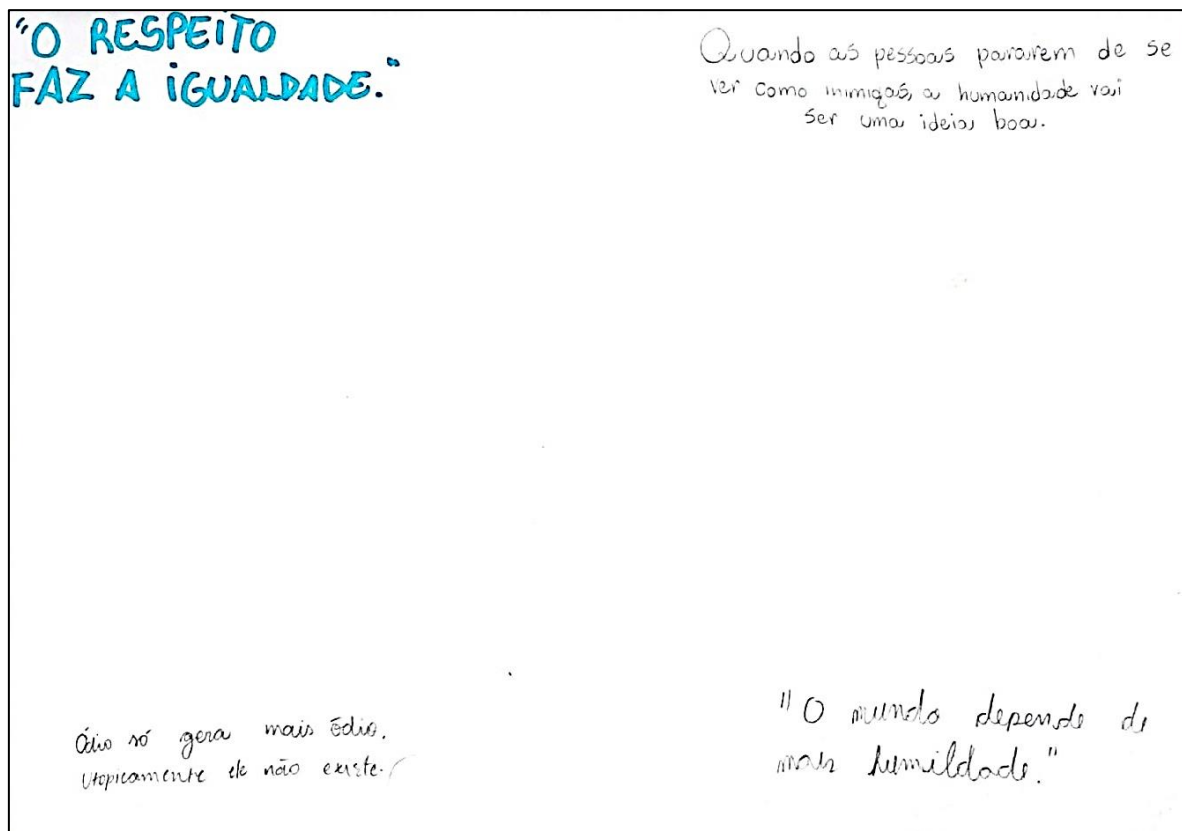 "O RESPEITO
FAZ A IGUALDADE."
Quando as pessoas pararem de se
ver como inimigas, a humanidade vai
ser uma ideia boa.
Ódio só gera mais ódio.
Utopicamente ele não existe.
"O mundo depende de
mais humildade."